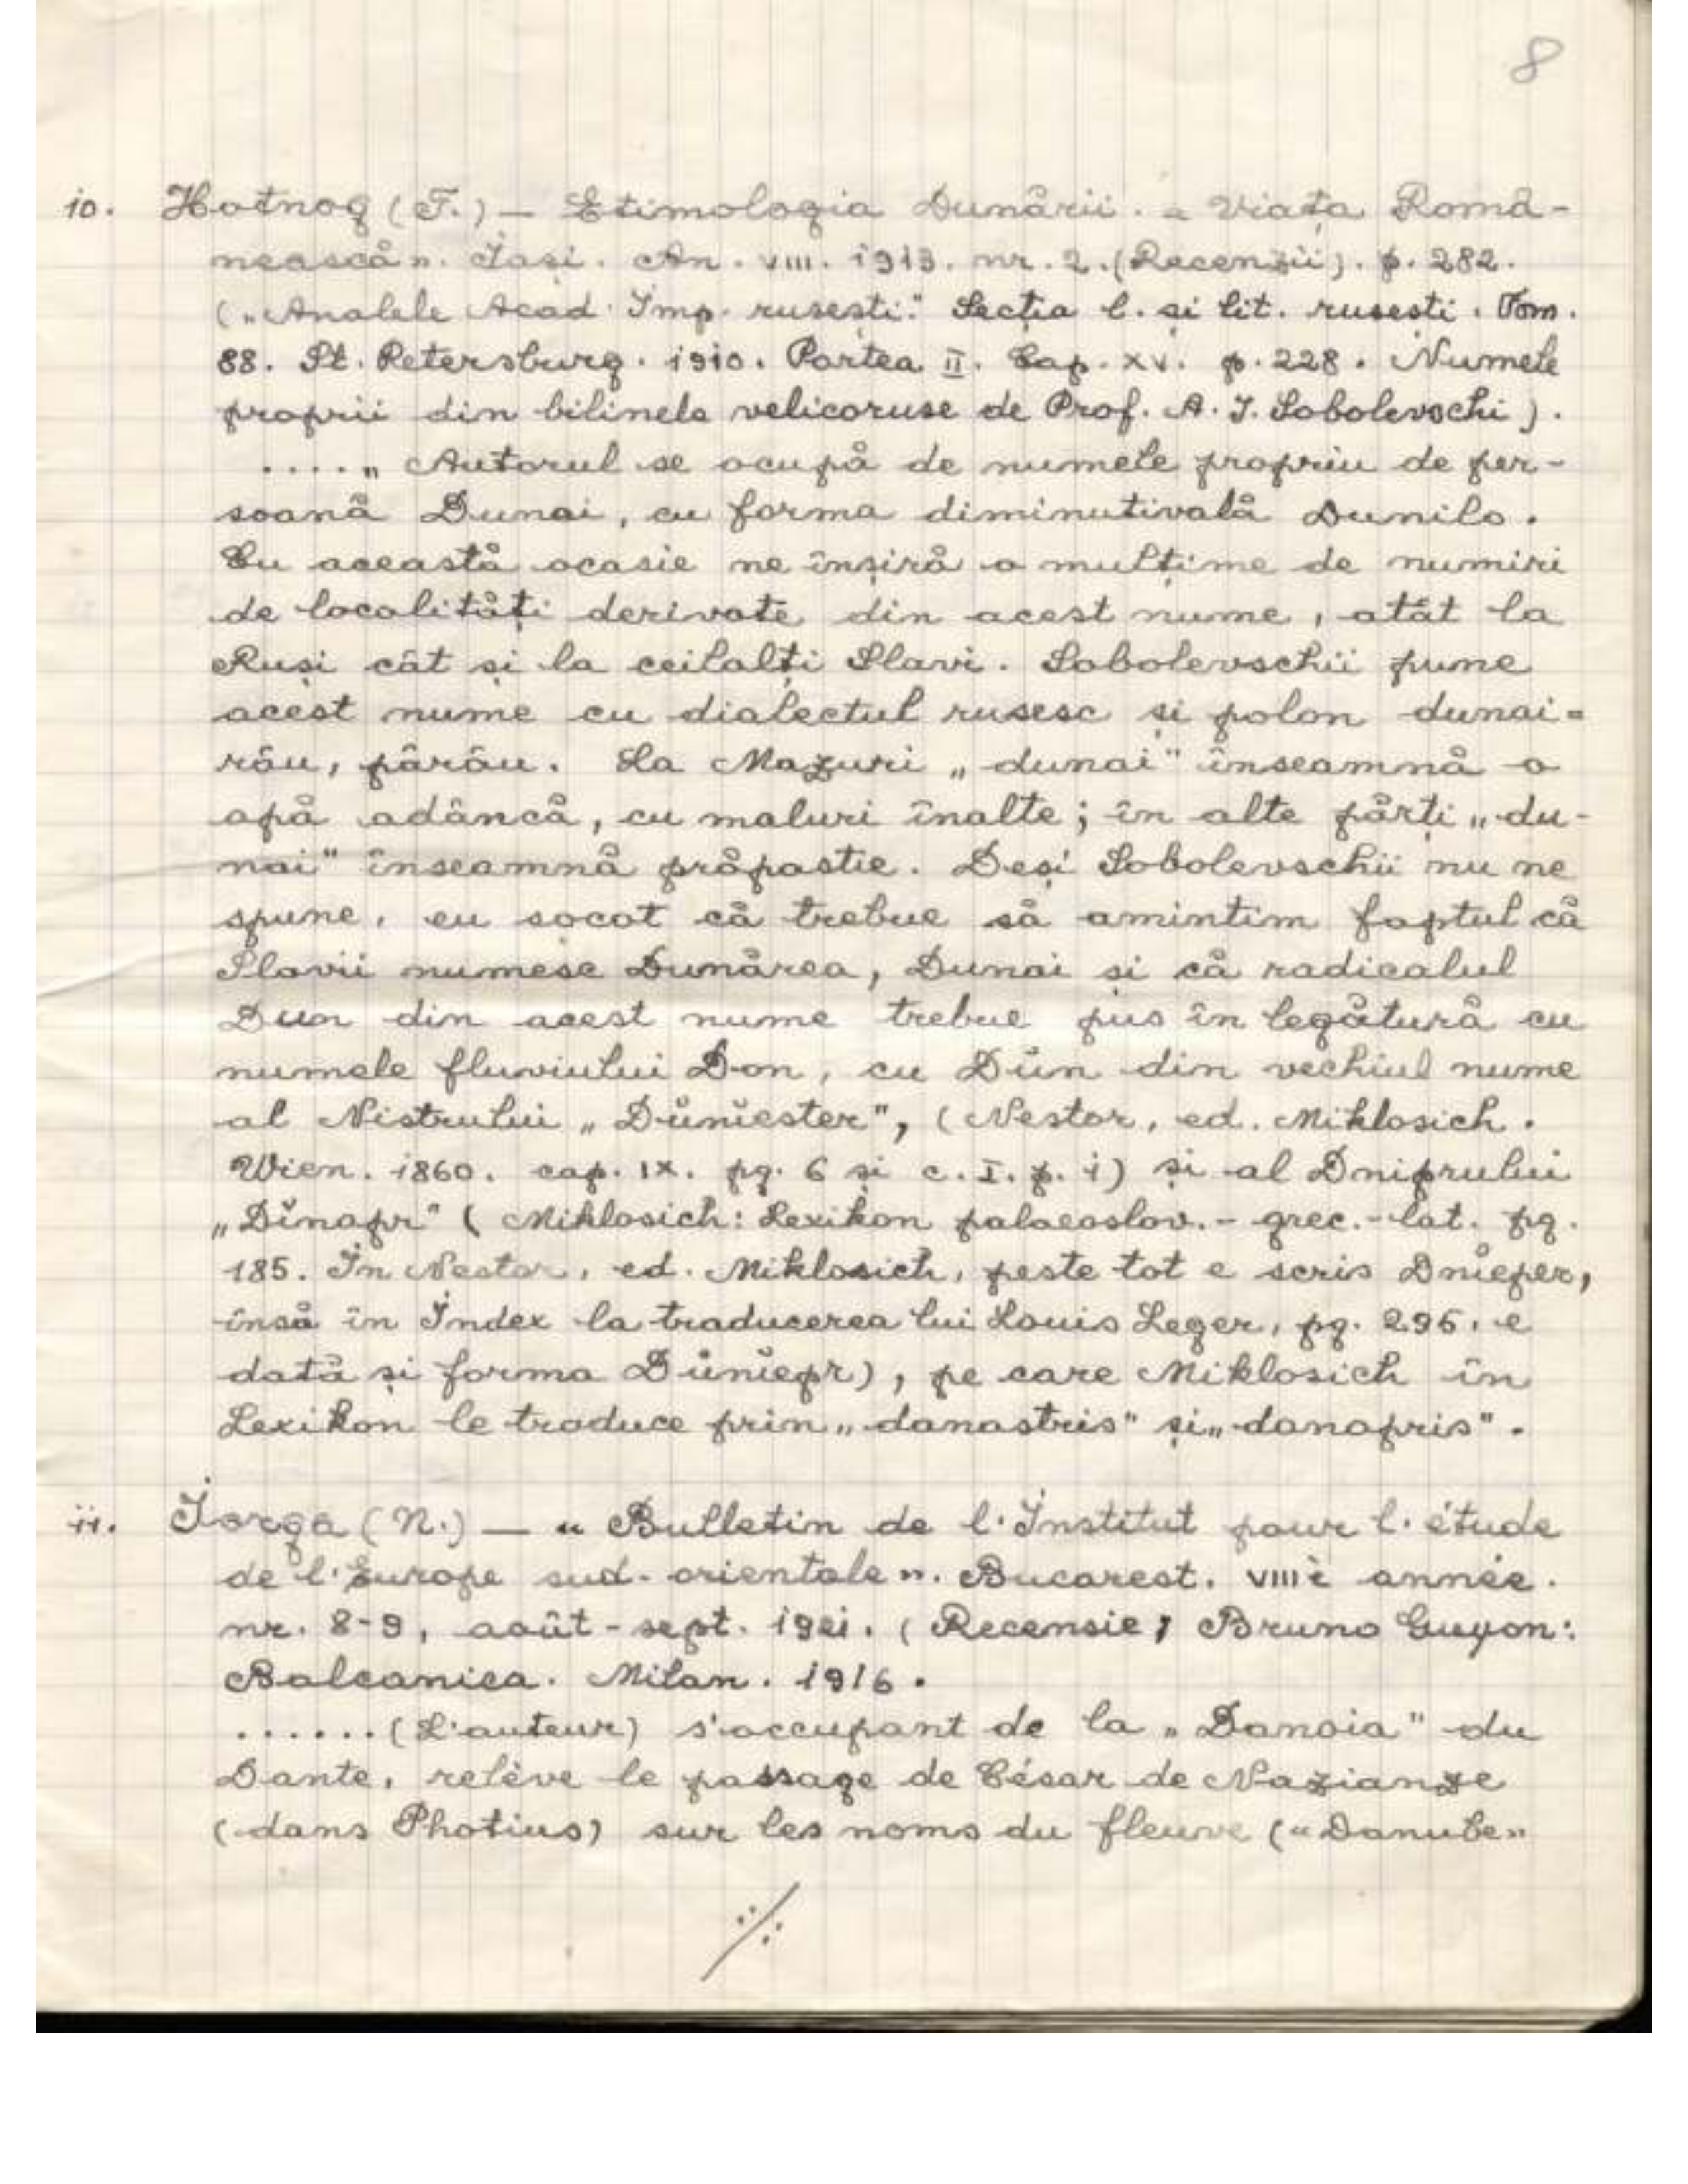 8
10. Hotnog (T.) — Etimologia Dunării. « Viața Româ-
nească ». Iași. An. VIII. 1913. nr. 2. (Recenzii). p. 282.
(„Analele Acad. Imp. rusești." Secția l. și lit. rusești. Tom.
88. St. Petersburg. 1910. Partea II. Cap. XV. p. 228. Numele
proprii din bilinele velicoruse de Prof. A. I. Sobolevschi).
....„ Autorul se ocupă de numele propriu de per-
soană Dunai, cu forma diminutivală Dunilo.
Cu această ocasie ne înșiră o mulțime de numiri
de localități derivate din acest nume, atât la
Ruși cât și la ceilalți Slavi. Sobolevschii pune
acest nume cu dialectul rusesc și polon dunai=
râu, pârâu. La Mazuri „dunai" înseamnă o
apă adâncă, cu maluri înalte; în alte părți „du-
nai" înseamnă prăpastie. Deși Sobolevschii nu ne
spune, eu socot că trebue să amintim faptul că
Slavii numesc Dunărea, Dunai și că radicalul
Dun din acest nume trebue pus în legătură cu
numele fluviului Don, cu Dŭn din vechiul nume
al Nistrului „Dŭnĭester", (Nestor, ed. Miklosich.
Wien. 1860. cap. IX. pg. 6 și c. I. p. 1) și al Dniprului
„Dĭnapr" ( Miklosich: Lexikon palaeoslov.- grec.-lat. pg.
185. In Nestor, ed. Miklosich, peste tot e scris Dnĭeper,
însă în Index la traducerea lui Louis Leger, pg. 295. e
dată și forma Dŭnĭepr), pe care Miklosich în
Lexikon le traduce prin „danastris" și „danapris".
11. Iorga (N.) — « Bulletin de l'Institut pour l'étude
de l'Europe sud-orientale ». Bucarest. VIIIè année.
nr. 8-9, août-sept. 1921. (Recensie; Bruno Guyon:
Balcanica. Milan. 1916.
......(L'auteur) s'occupant de la „Danoia" du
Dante, relève le passage de César de Nazianze
(dans Photius) sur les noms du fleuve (« Danube »
./.